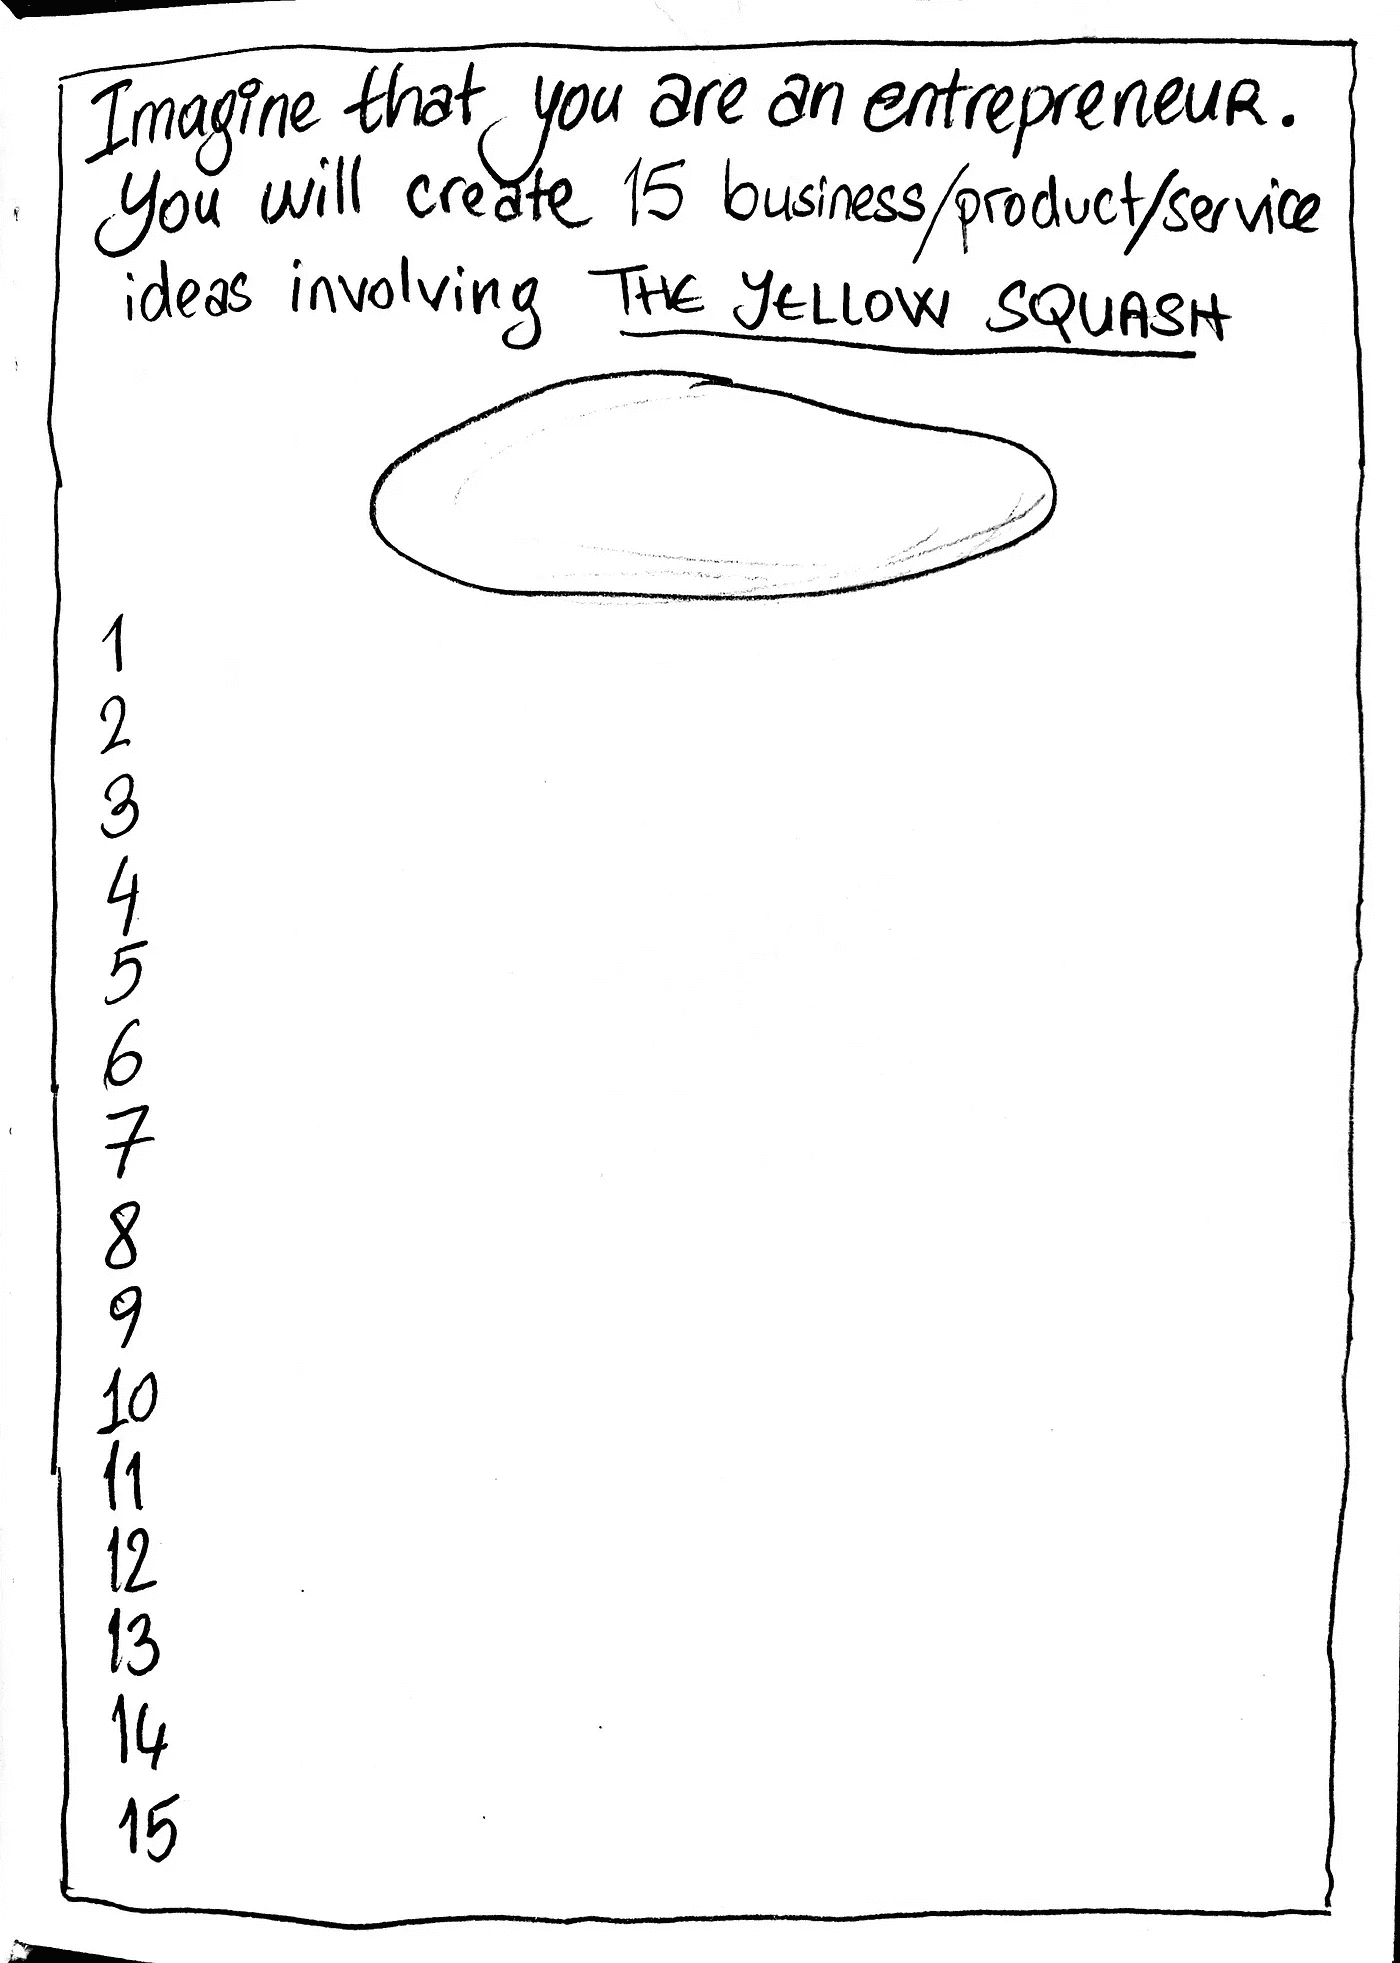 Imagine that you are an entrepreneur.
You will create 15 business/product/service
ideas involving THE YELLOW SQUASH
1
2
3
4
5
6
7
8
9
10
11
12
13
14
15